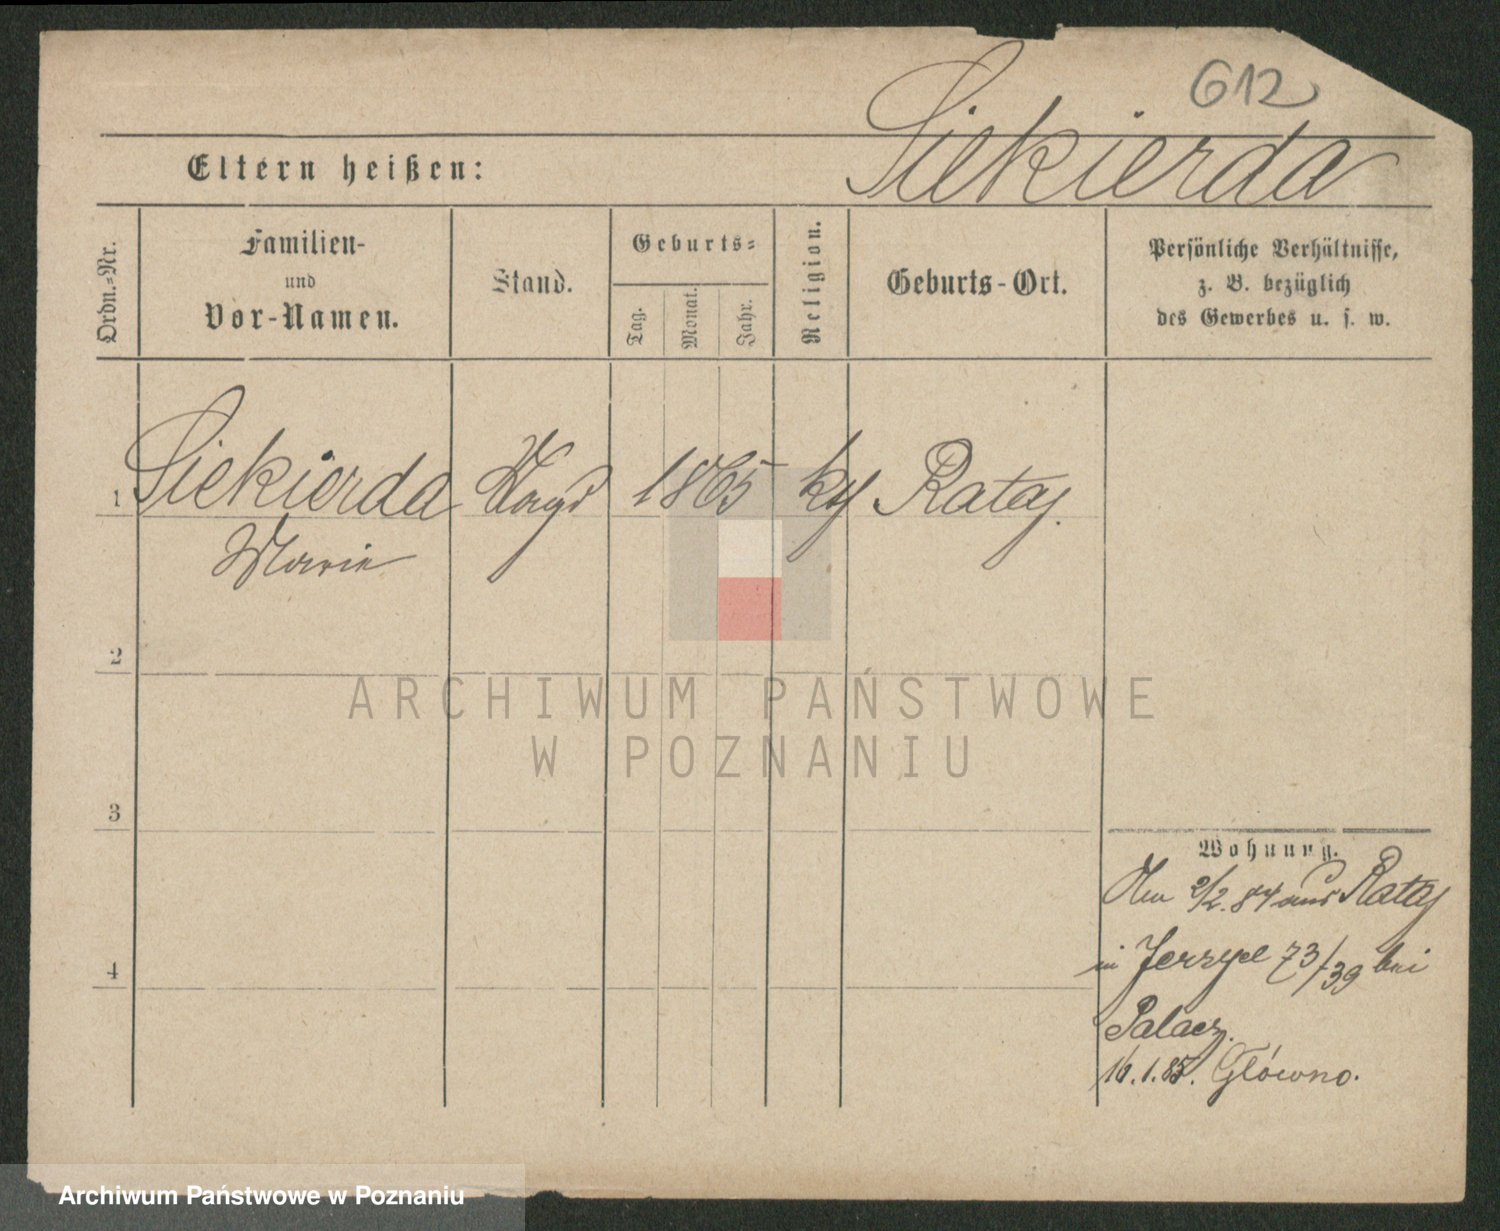 612
Siekierda
Eltern heißen:
Ordn.-Nr.
Familien-
und
Vor-Namen.
Stand.
Geburts-
Tag.
Monat.
Jahr.
Religion.
Geburts-Ort.
Persönliche Verhältnisse,
z. B. bezüglich
des Gewerbes u. s. w.
1 Siekierda 1865 Rataj.
Marie
2
ARCHIWUM PAŃSTWOWE
W POZNANIU
3
Wohnung.
2/2. 84 aus Rataj
in 73/39 bei
4
Palacz.
16.1.85. Główno.
Archiwum Państwowe w Poznaniu